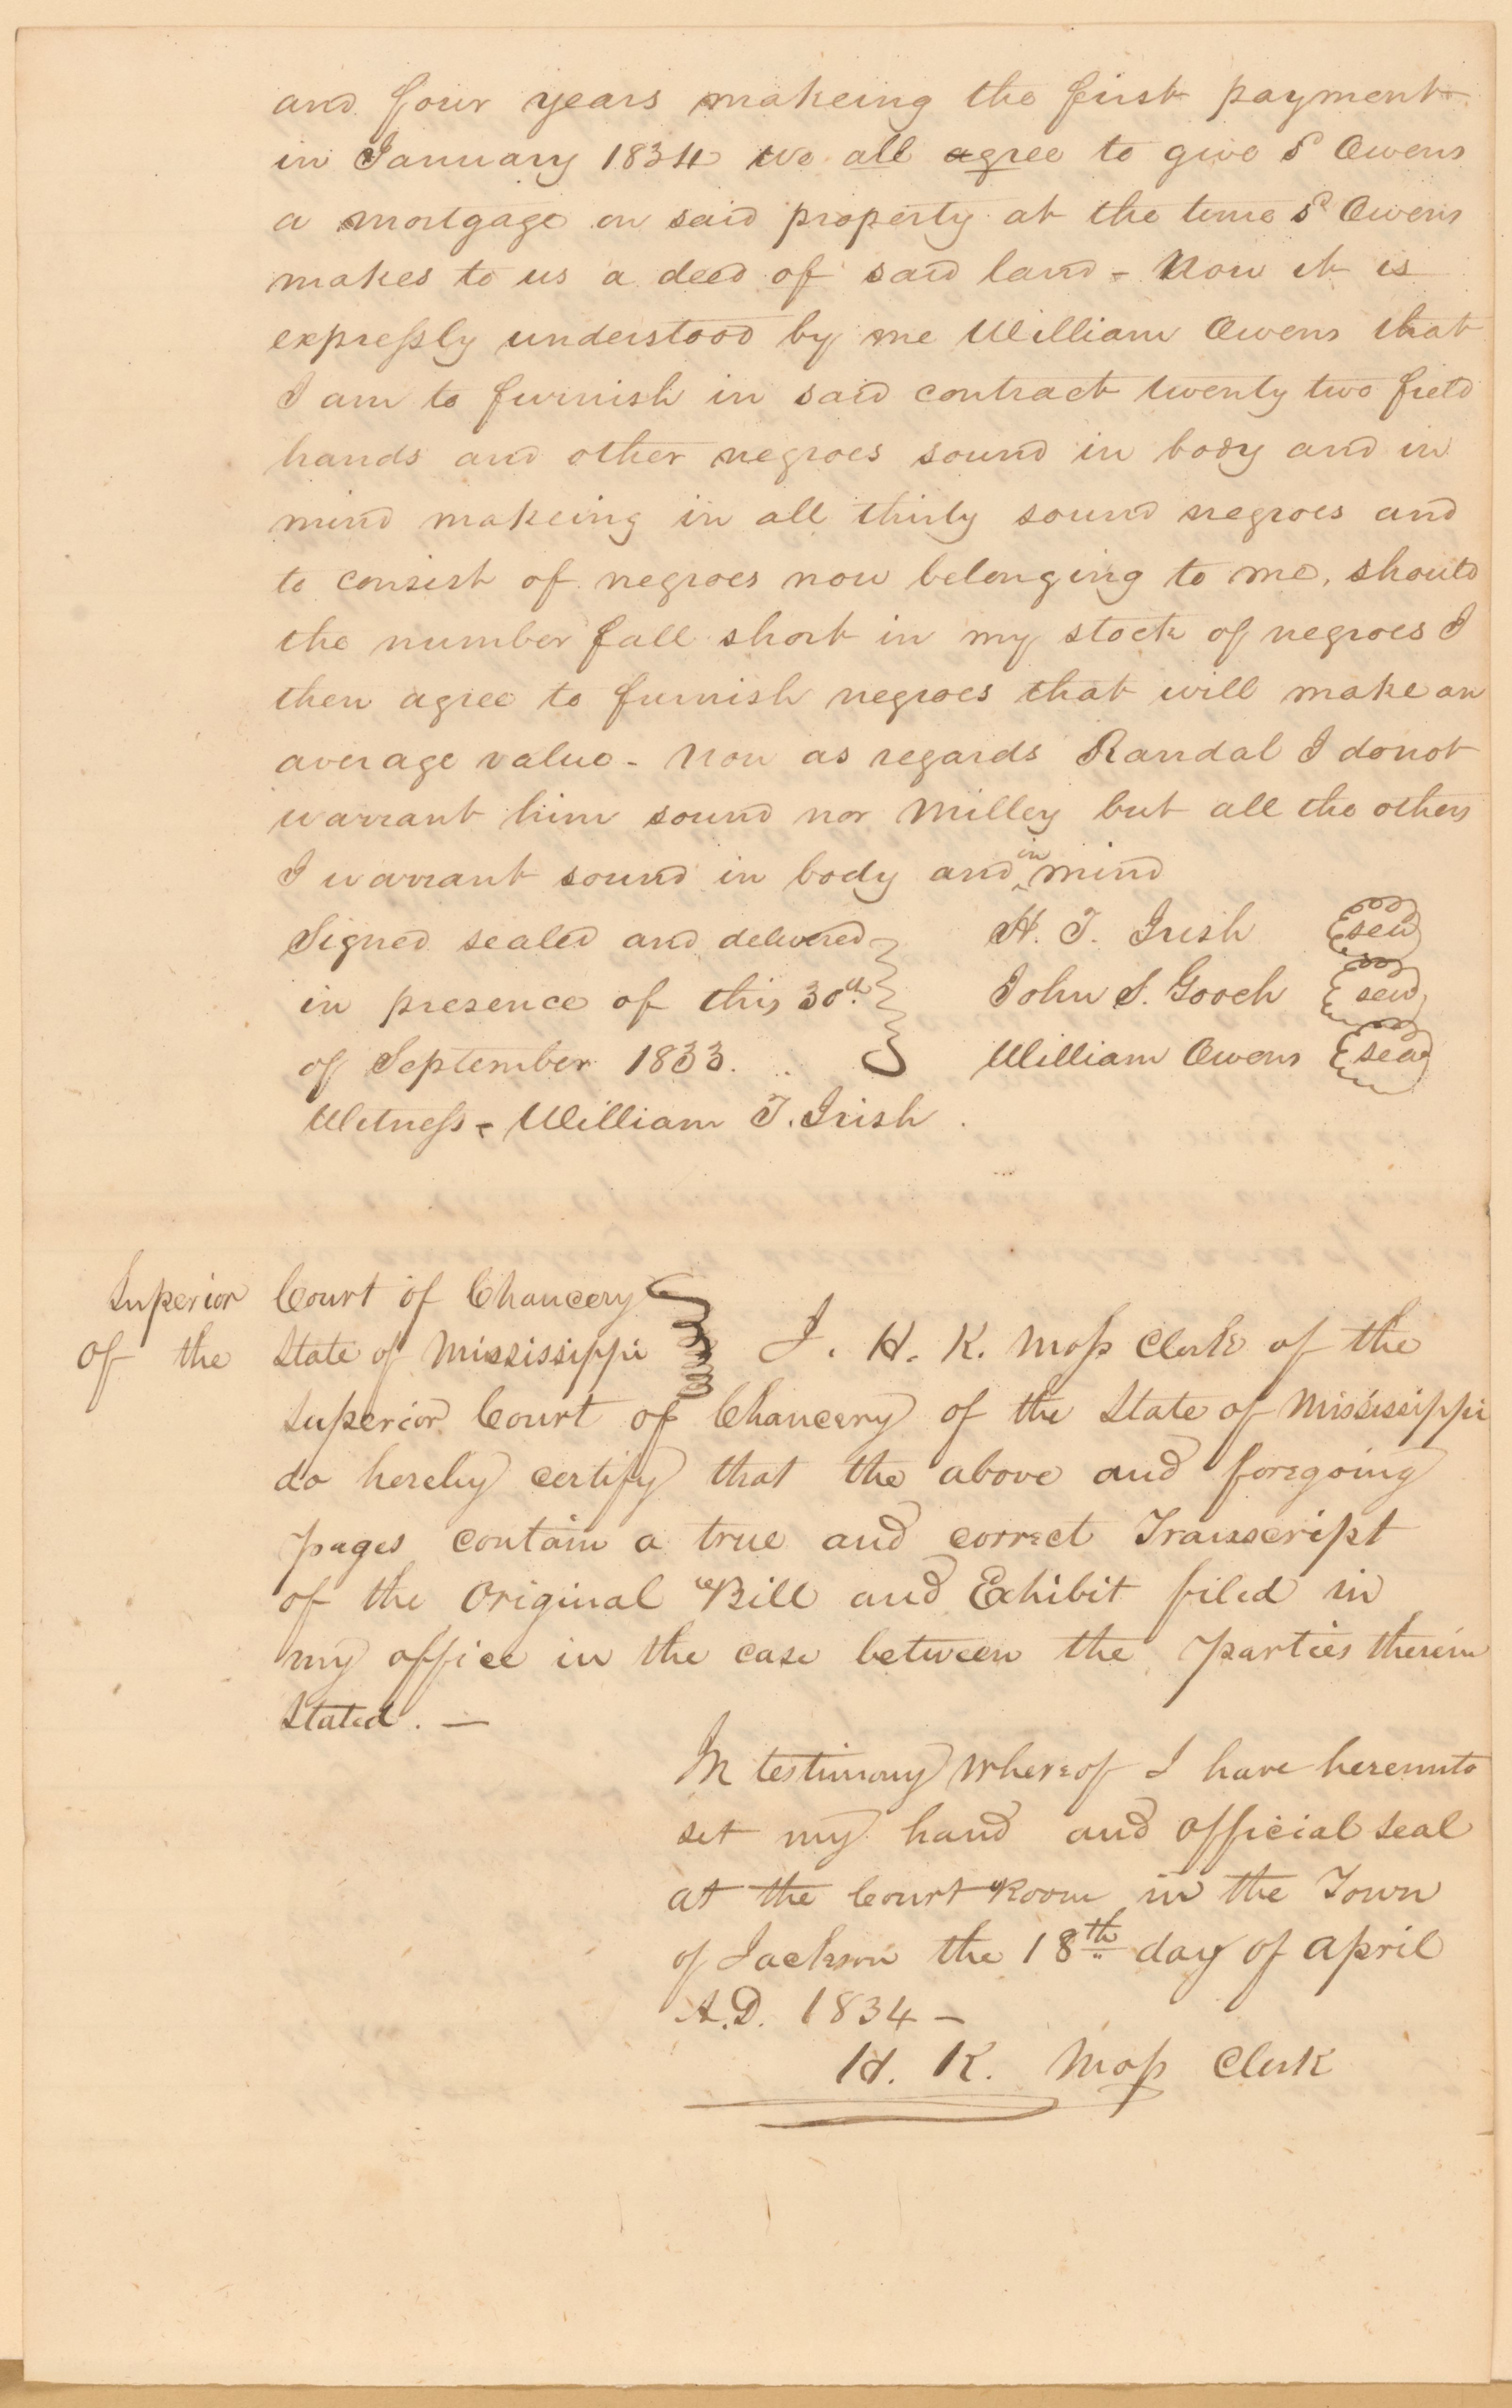 and four years makeing the first payment
in January 1834 we all agree to give sd Owens
a mortgage on said property at the time sd Owens
makes to us a deed of said land - Now it is
expressly understood by me William Owens that
I am to furnish in said contract twenty two field
hands and other negroes sound in body and in
mind makeing in all thirty sound negroes and
to consist of negroes now belonging to me, should
the number fall short in my stock of negroes I
then agree to furnish negroes that will make an
average value - Now as regards Randal I do not
warrant him sound nor Milley but all the others
I warrant sound in body and in mind
Signed sealed and delivered H. T. Irish seal
in presence of this 30th. John S. Gooch seal
of September 1833. William Owens seal
Witness - William T. Irish
Superior Court of Chancery
Of the State of Mississippi I. H. K. Moss Clerk of the
Superior Court of Chancery of the State of Mississippi
do hereby certify that the above and foregoing
pages contain a true and correct Transcript
of the Original Bill and Exhibit filed in
my office in the case between the parties therein
Stated. —
In testimony whereof I have hereunto
set my hand and official seal
at the Court Room in the Town
of Jackson the 18th day of April
A.D. 1834 —
H. K. Moss Clerk